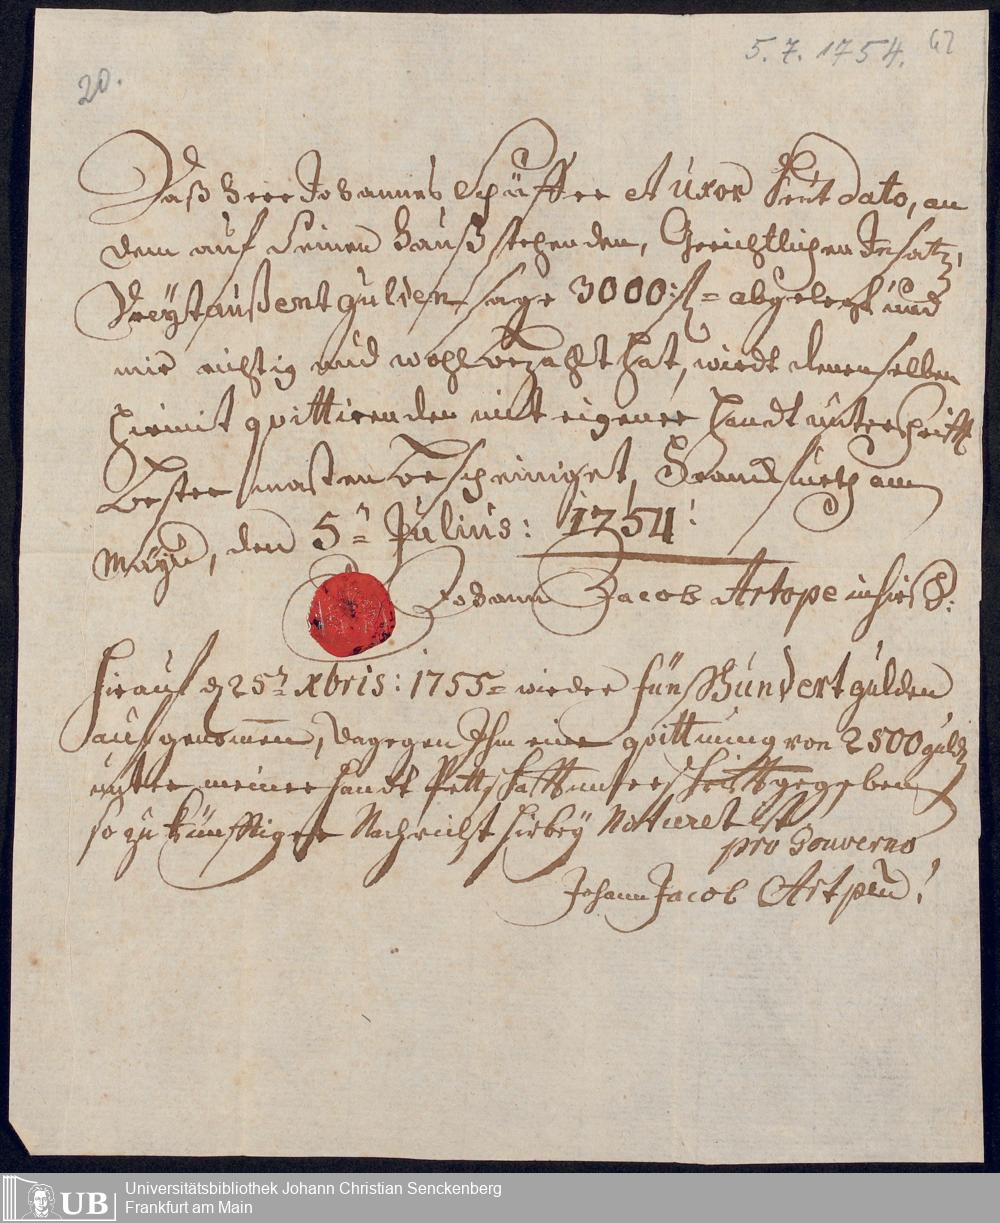 20.
5. 7. 1754.
62
Daß Herr Johannes Schüffer et Uxor heüt dato, an
dem auf Seinen Hauß stehenden, Gerichtlichen Insatz,
Dreÿtaußent gulden sage 3000:fl= abgelegt und
mir richtig und wohl bezahlt hat, wirdt denenselben
hiemit quittirender mit eigener Handt unterschrifft
bester masten bescheiniget, Franckfurth am
Maÿn, den 5ⁿ= Julius: 1754!
Johann Jacob Artope
hierauf d 25ⁿ xbris: 1755= wieder fünffhundert gulden
aufgenommen, dagegen Ihm eine quittung von 2500 guld
unter meiner Handt Pettschafft unterschrifft gegeben
so zu künfftiger Nachricht hirbeÿ Noturet ist
pro Gouverno
Johann Jacob
UB
Universitätsbibliothek Johann Christian Senckenberg
Frankfurt am Main